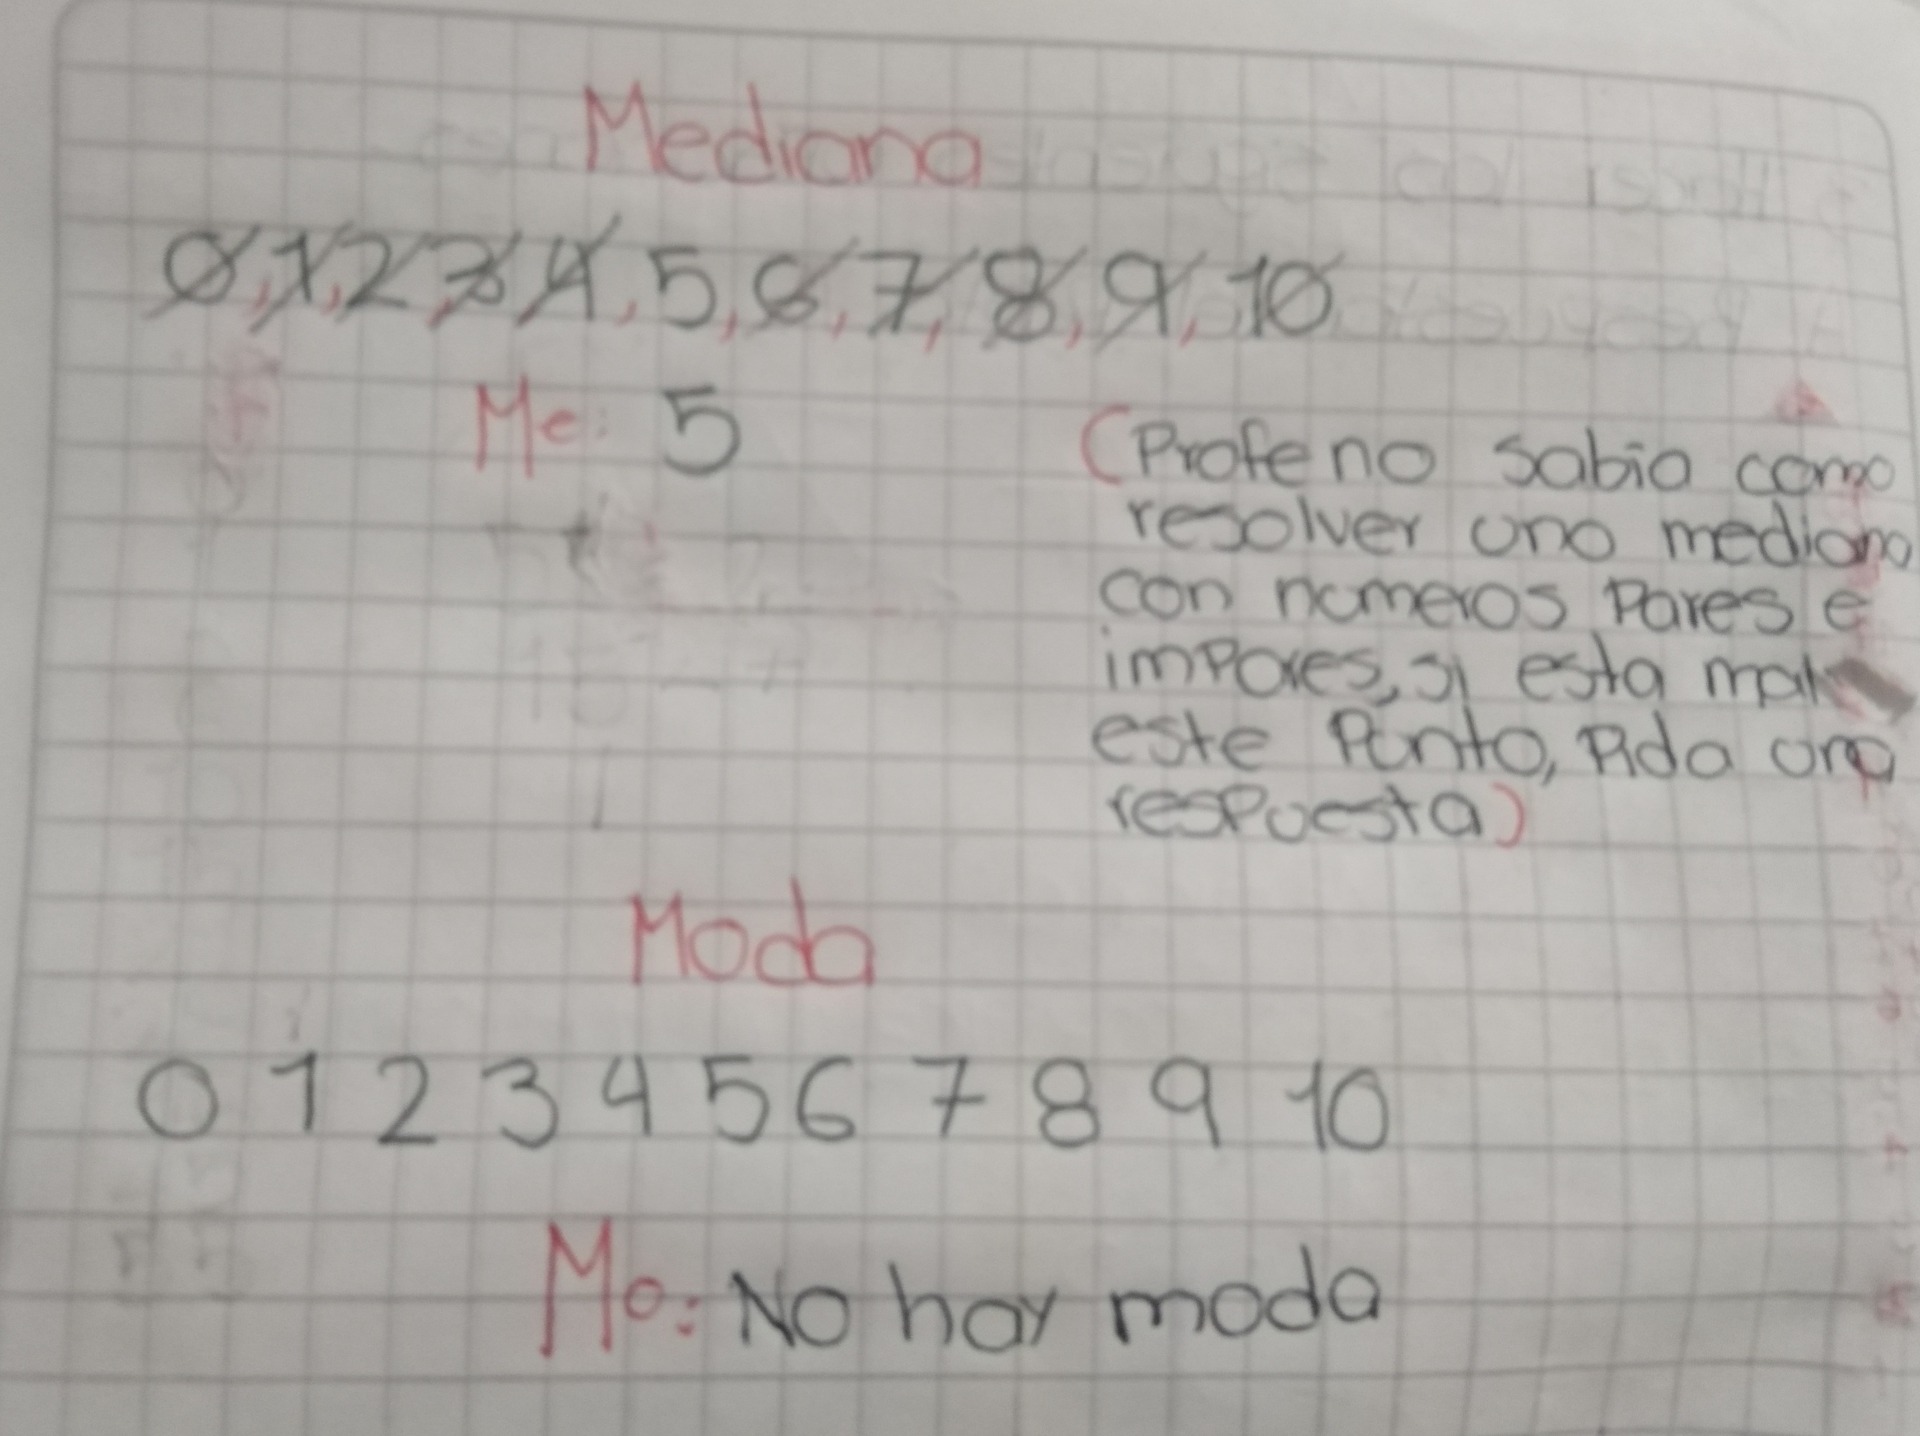 Mediana
0, 1, 2, 3, 4, 5, 6, 7, 8, 9, 10
Me: 5
(Profe no sabia como
resolver una mediana
con numeros Pares e
impares, si esta mal
este Punto, Pida una
respuesta)
Moda
0 1 2 3 4 5 6 7 8 9 10
Mo: No hay moda